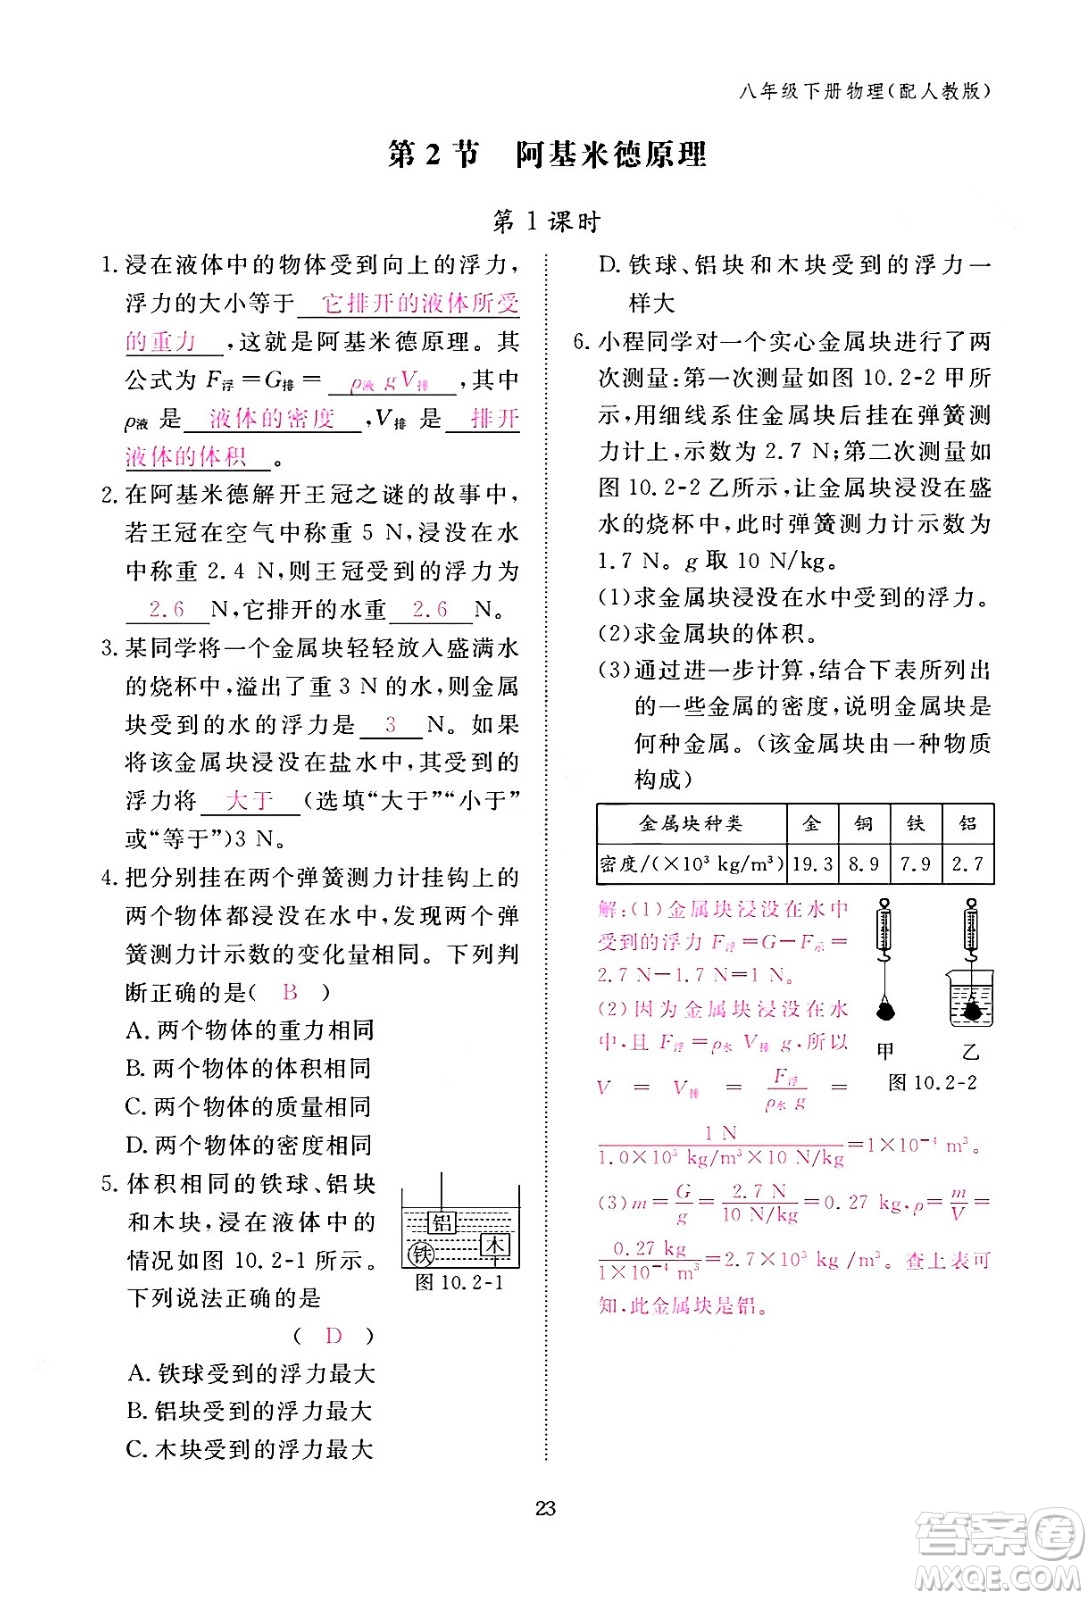 八年级下册物理(配人教版)
第2节 阿基米德原理
第1课时
1. 浸在液体中的物体受到向上的浮力，
浮力的大小等于 它排开的液体所受
的重力 ,这就是阿基米德原理。其
公式为 F浮=G排= ρ液 gV排 ,其中
ρ液 是 液体的密度 ,V排 是 排开
液体的体积 。
2. 在阿基米德解开王冠之谜的故事中，
若王冠在空气中称重 5 N,浸没在水
中称重 2.4 N,则王冠受到的浮力为
2.6 N,它排开的水重 2.6 N。
3. 某同学将一个金属块轻轻放入盛满水
的烧杯中,溢出了重 3 N 的水,则金属
块受到的水的浮力是 3 N。如果
将该金属块浸没在盐水中,其受到的
浮力将 大于 (选填“大于”“小于”
或“等于”)3 N。
4. 把分别挂在两个弹簧测力计挂钩上的
两个物体都浸没在水中,发现两个弹
簧测力计示数的变化量相同。下列判
断正确的是( B )
A. 两个物体的重力相同
B. 两个物体的体积相同
C. 两个物体的质量相同
D. 两个物体的密度相同
5. 体积相同的铁球、铝块
和木块,浸在液体中的
情况如图 10.2-1 所示。
下列说法正确的是
( D )
铝
铁
木
图 10.2-1
A. 铁球受到的浮力最大
B. 铝块受到的浮力最大
C. 木块受到的浮力最大
D. 铁球、铝块和木块受到的浮力一
样大
6. 小程同学对一个实心金属块进行了两
次测量:第一次测量如图 10.2-2 甲所
示,用细线系住金属块后挂在弹簧测
力计上,示数为 2.7 N;第二次测量如
图 10.2-2 乙所示,让金属块浸没在盛
水的烧杯中,此时弹簧测力计示数为
1.7 N。g 取 10 N/kg。
(1)求金属块浸没在水中受到的浮力。
(2)求金属块的体积。
(3)通过进一步计算,结合下表所列出
的一些金属的密度,说明金属块是
何种金属。(该金属块由一种物质
构成)
金属块种类 金 铜 铁 铝
密度/(×10³ kg/m³) 19.3 8.9 7.9 2.7
解:(1)金属块浸没在水中
受到的浮力 F浮=G-F示=
2.7 N-1.7 N=1 N。
(2)因为金属块浸没在水
中,且 F浮=ρ水 V排 g,所以
V = V排 = F浮/(ρ水 g) =
1 N/(1.0×10³ kg/m³×10 N/kg)=1×10⁻⁴ m³。
(3)m=G/g=2.7 N/(10 N/kg)=0.27 kg,ρ=m/V=
0.27 kg/(1×10⁻⁴ m³)=2.7×10³ kg/m³。查上表可
知,此金属块是铝。
甲 乙
图 10.2-2
23
答案卷
www.daanjuan.com